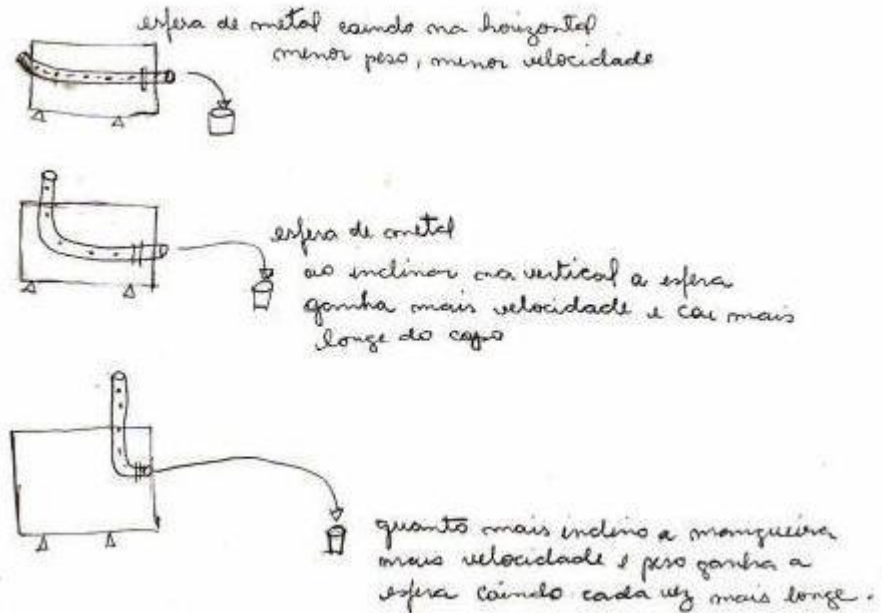 esfera de metal caindo na horizontal
menor peso, menor velocidade
esfera de metal
ao inclinar na vertical a esfera
ganha mais velocidade e cai mais
longe do copo
quanto mais inclino a mangueira
mais velocidade e peso ganha a
esfera caindo cada vez mais longe.